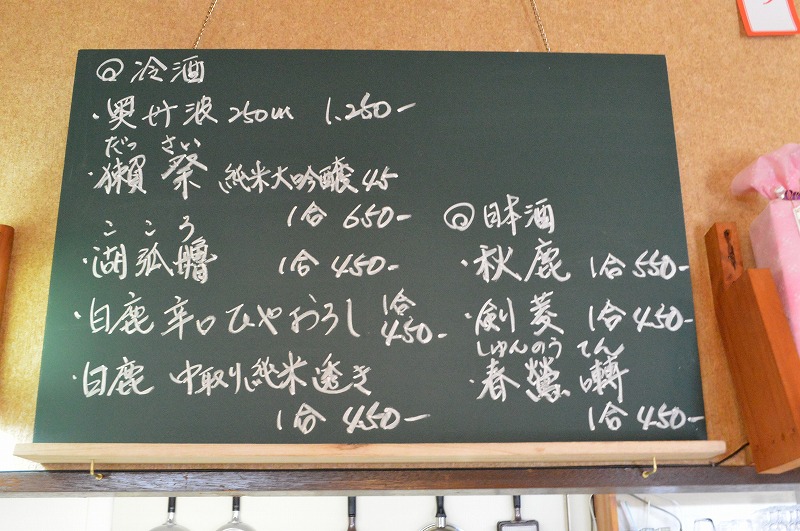 ◎冷酒
・奥丹波 250ml 1,250-
だっさい
・獺祭 純米大吟醸45
1合 650-
こころ
・湖弧艪 1合 450-
・白鹿 辛口ひやおろし 1合 450-
・白鹿 中取り純米透き
1合 450-
◎日本酒
・秋鹿 1合 550-
・剣菱 1合 450-
しゅんのうてん
・春鶯囀
1合 450-